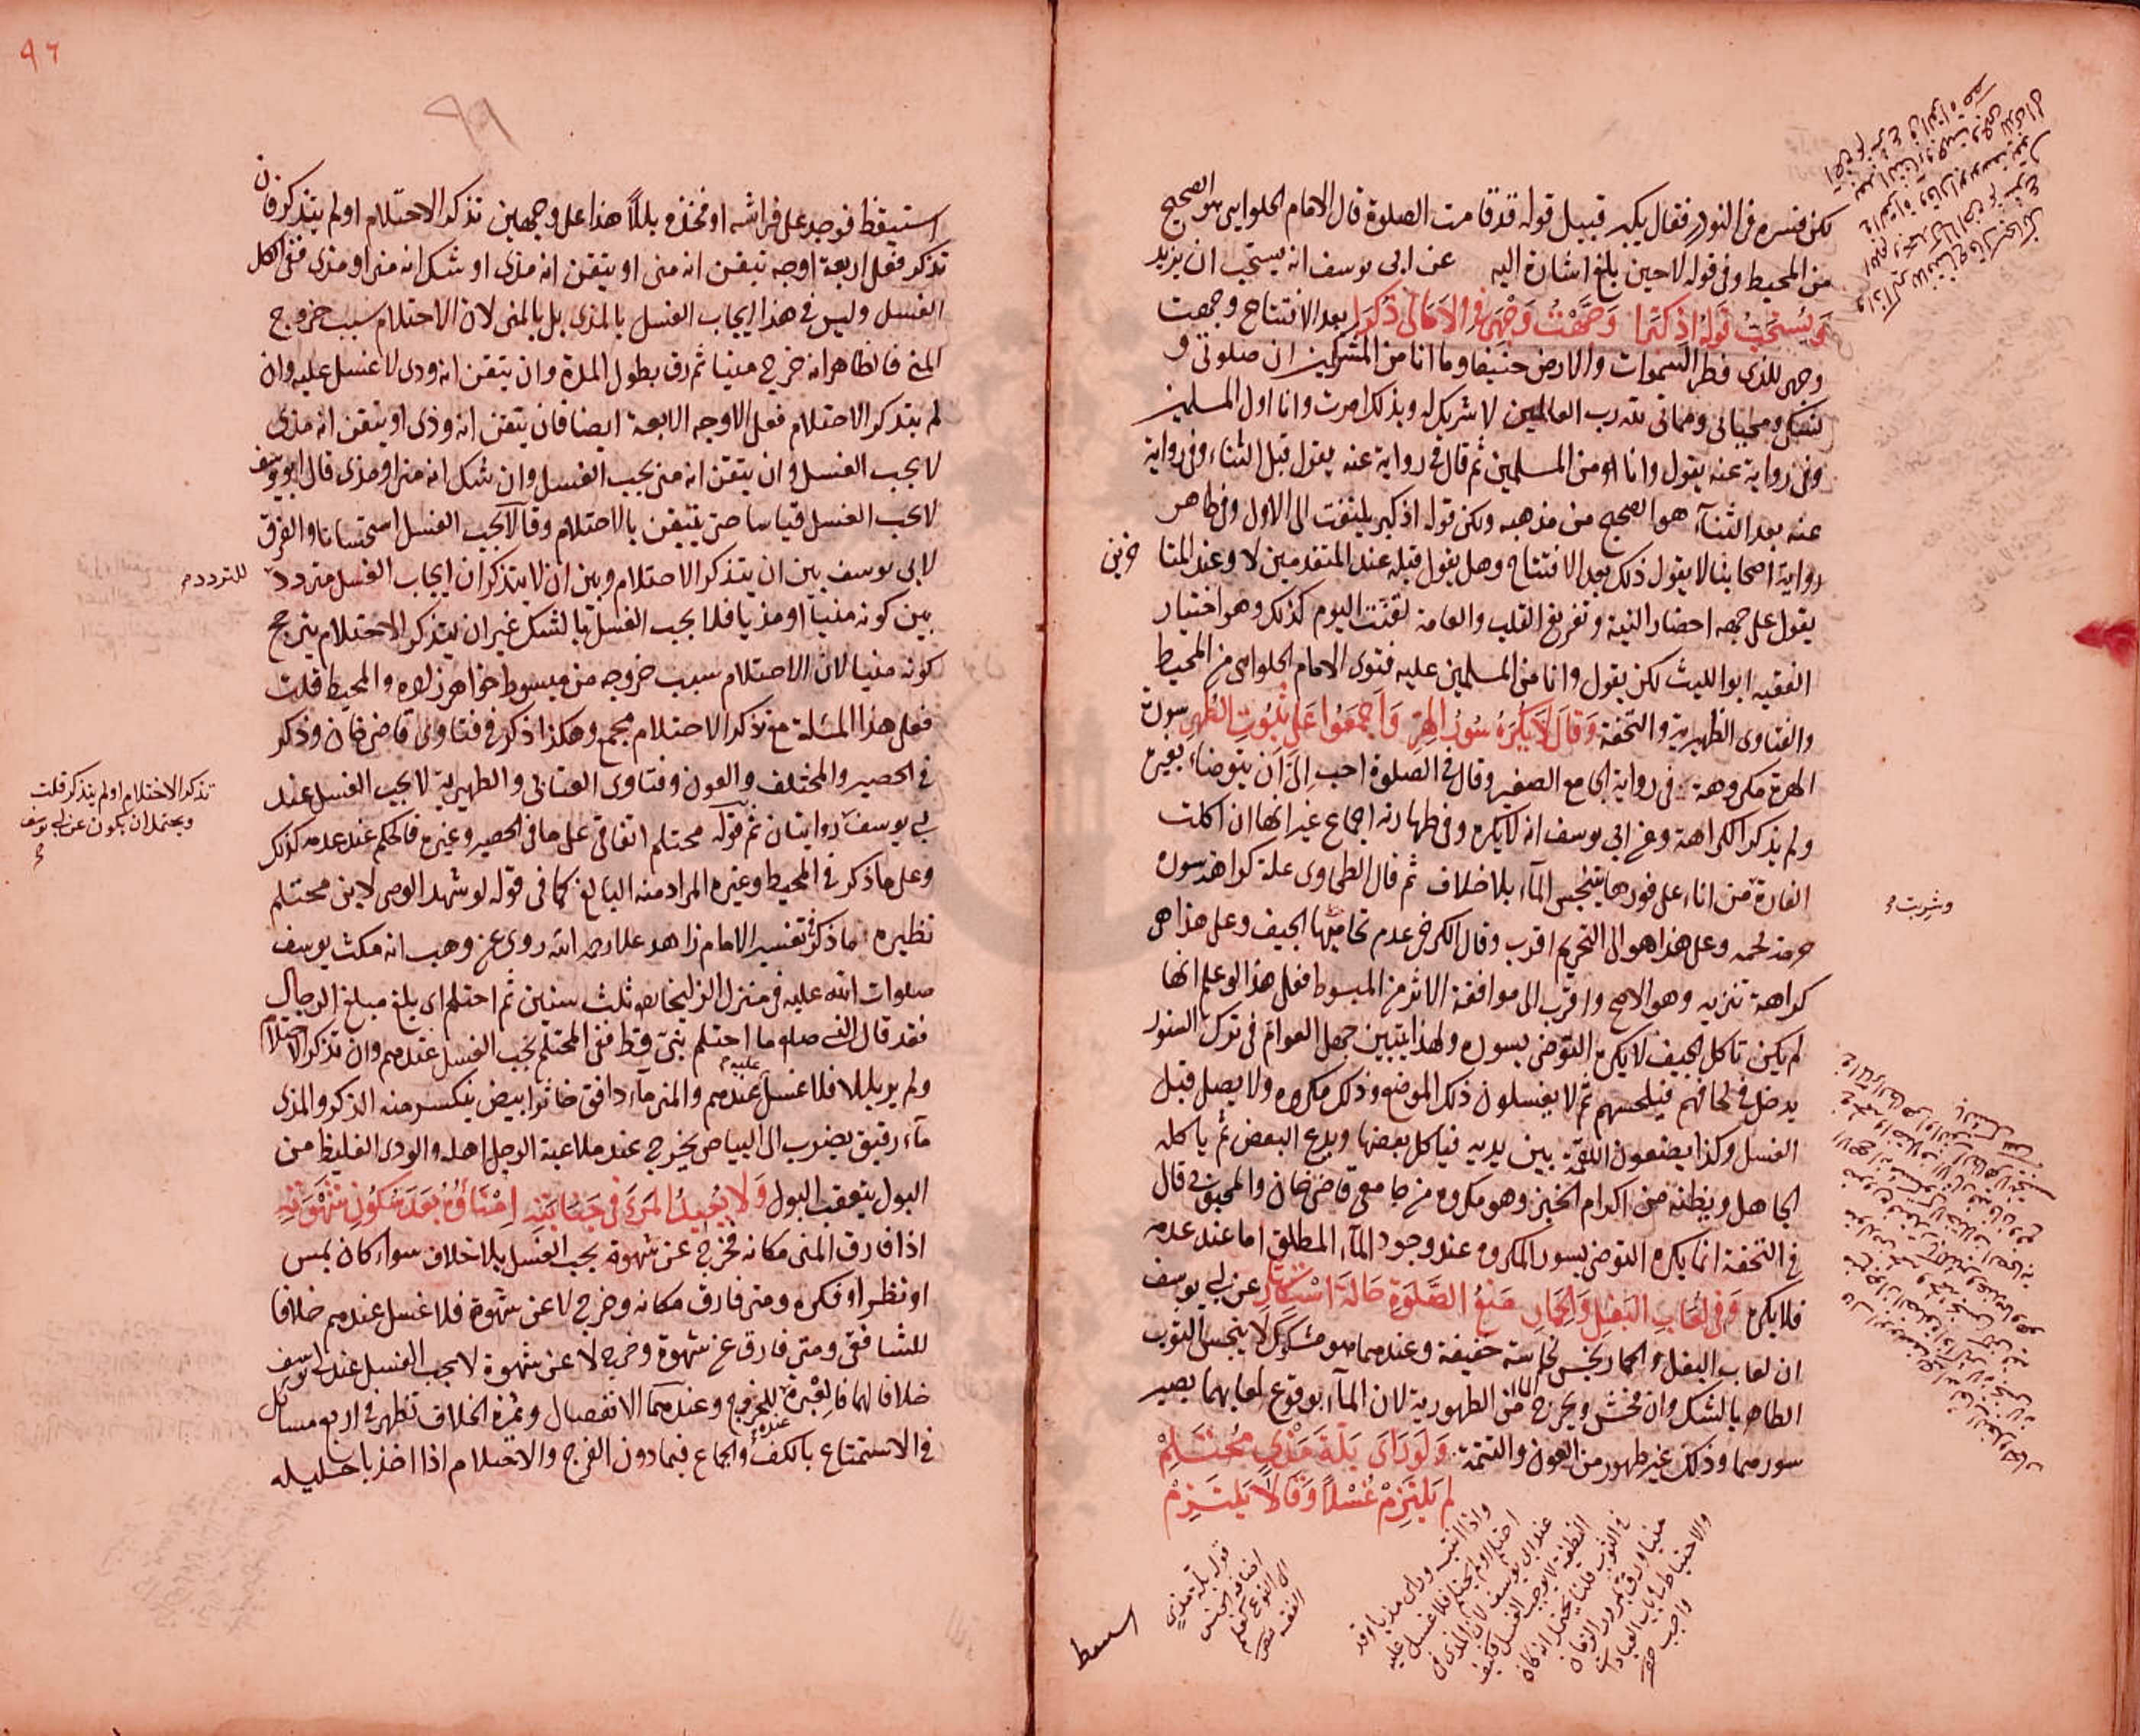 لكن فسره في النوادر فقال يكبر قبيل قوله قد قامت الصلوة قال الامام الحلوايى هو الصحيح
من المحيط وفي قوله لاحين بلغ اشارة اليه عن ابى يوسف انه يستحب ان يزيد
ويستحب قوله اذ كبرا وجهت وجهى في الاكالى ذكرا بعد الافتتاح وجهت
وجهى للذى فطر السموات والارض حنيفا وما انا من المشركين ان صلوتى و
نسكى ومحياى ومماتى لله رب العالمين لا شريك له وبذلك امرت وانا اول المسلمين
وفي رواية عنه يقول وانا من المسلمين ثم قال في رواية عنه يقول قبل الثناء وفي رواية
عنه بعد الثناء هو الصحيح من مذهبه ولكن قوله اذ كبر يلتفت الى الاول وفي ظاهر
رواية اصحابنا لا يقول ذلك بعد الافتتاح وهل يقول قبله عند المتقدمين لا وعند المتا خرين
يقول على جهه احضار النية وتفريغ القلب والعامة لقنت اليوم كذلك وهو اختيار
الفقيه ابو الليث لكن يقول وانا من المسلمين عليه فتوى الامام الحلوايى من المحيط
والفتاوى الظهيرية والتحفة وقال لا يكره سؤر الهر واجمعوا على ثبوت الطهر سورة
الهرة مكروهة في رواية الجامع الصغير وقال في الصلوة احب الى ان يتوضاء بغيره
ولم يذكر الكراهة وعن ابي يوسف انه لا يكره وفي طهارته اجماع غير انها ان اكلت
الفارة من اناء على فورها يتنجس الماء بلا خلاف ثم قال الطحاوى علة كراهة سوره
حرمة لحمه وعلى هذا هو الى التحريم اقرب وقال الكرخى عدم تحاميها الجيف وعلى هذا هى
كراهة تنزيه وهو الاصح واقرب الى موافقة الاثر من المبسوط فعلى هذا لو علم انها
لم يكن تاكل الجيف لا يكره التوضى بسوره ولهذا يتبين جهل العوام في ترك السنور
يدخل في لحافهم فيلحسهم ثم لا يغسلون ذلك الموضع وذلك مكروه ولا يصلى قبل
الغسل وكذا يضعون اللقمة بين يديه فياكل بعضها ويدع البعض ثم ياكله
الجاهل ويظنه من اكرام الخبز وهو مكروه من جامعى قاضى خان والمحبوبى قال
في التحفة انما يكره التوضى بسور المكروه عند وجود الماء المطلق اما عند عدمه
فلا يكره وفي لعاب البغل والحمار منع الصلوة حالة استكثار عن ابى يوسف
ان لعاب البغل والحمار نجس نجاسة خفيفة وعندهما هو مشكوك لا ينجس الثوب
الطاهر بالشك وان فحش ويخرج الماء من الطهورية لان الماء بوقوع لعابهما يصير
سورهما وذلك غير طهور من العون والتتمة ولو راى بلة مذى محتلم
لم يلتزم غسلا وقالا يلتزم
وشربت
قوله بلة مذى
اضافة الجنس
الى النوع كعلم
الفقه
واذا انتبه وراى مذيا وقد
احتلم او لم يحتلم فلا غسل عليه
عند ابى يوسف لان المذى في
اليقظة لا يوجب الغسل فكيف
في النوم قلنا يحتمل انه كان
منيا فرق بمرور الزمان
والاحتياط في باب العبادات
واجب
استيقظ
٩٦
٩٩
استيقظ فوجد على فراشه او فخذه بللا هذا على وجهين تذكر الاحتلام او لم يتذكر فان
تذكر فعلى اربعة اوجه تيقن انه منى او يتقن انه مذى او شك انه منى او مذى ففى الكل
الغسل وليس في هذا ايجاب الغسل بالمذى بل بالمنى لان الاحتلام سبب خروج
المنى فالظاهر انه خرج منيا ثم رق بطول المدة وان يتقن انه ودى لا غسل عليه وان
لم يتذكر الاحتلام فعلى الاوجه الاربعة ايضا فان يتقن انه ودى او يتقن انه مذى
لا يجب الغسل وان يتقن انه منى يجب الغسل وان شك انه منى او مذى قال ابو يوسف
لا يجب الغسل قياسا حتى يتيقن بالاحتلام وقالا يجب الغسل استحسانا والفرق
لابى يوسف بين ان يتذكر الاحتلام وبين ان لا يتذكر ان ايجاب الغسل متردد
للتردد
بين كونه منيا او مذيا فلا يجب الغسل بالشك غير ان بتذكر الاحتلام يترجح
كونه منيا لان الاحتلام سبب خروجه من مبسوط خواهر زاده والمحيط قلت
فعلى هذا المسئلة مع تذكر الاحتلام مجمع وهكذا ذكر في فتاوى قاضى خان وذكر
في الحصير والمختلف والعون وفتاوى العتابى والظهيرية لا يجب الغسل عند
تذكر الاحتلام او لم يتذكر قلت
ويحتمل ان يكون عن ابى يوسف
ابى يوسف روايتان ثم قوله محتلم اتفاقى على ما في الحصير وغيره فالحكم عند عدمه كذلك
وعلى ما ذكر في المحيط وغيره المراد منه البالغ كما في قوله لو شهد الوصى لابن محتلم
نظيره ما ذكر في تفسير الامام زاهد علا رحمه الله روى عن وهب انه مكث يوسف
صلوات الله عليه في منزل الزليخا ثلث سنين ثم احتلم اى بلغ مبلغ الرجال
فقد قال النبى صلم ما احتلم نبى قط ففى المحتلم يجب الغسل عندهم وان تذكر الاحتلام
ولم ير بللا فلا غسل عليه عندهم والمنى ماء دافق خاثر ابيض ينكسر منه الذكر والمذى
ماء رقيق يضرب الى البياض يخرج عند ملاعبة الرجل اهله والودى الغليظ من
البول يتعقب البول ولا يعيد المرء في جنابته امناؤه بعد سكون شهوته
اذا فارق المنى مكانه فخرج عن شهوة يجب الغسل بلا خلاف سواء كان بمس
او نظر او فكره ومتى فارق مكانه وخرج لا عن شهوة فلا غسل عندهم خلافا
للشافعى ومتى فارق عن شهوة وخرج لا عن شهوة لا يجب الغسل عند ابى يوسف
خلافا لهما فالعبرة للخروج عنده وعندهما الانفصال وثمرة الخلاف تظهر في اربع مسائل
في الاستمتاع بالكف والجماع فيما دون الفرج والاحتلام اذا اخذ باحليله